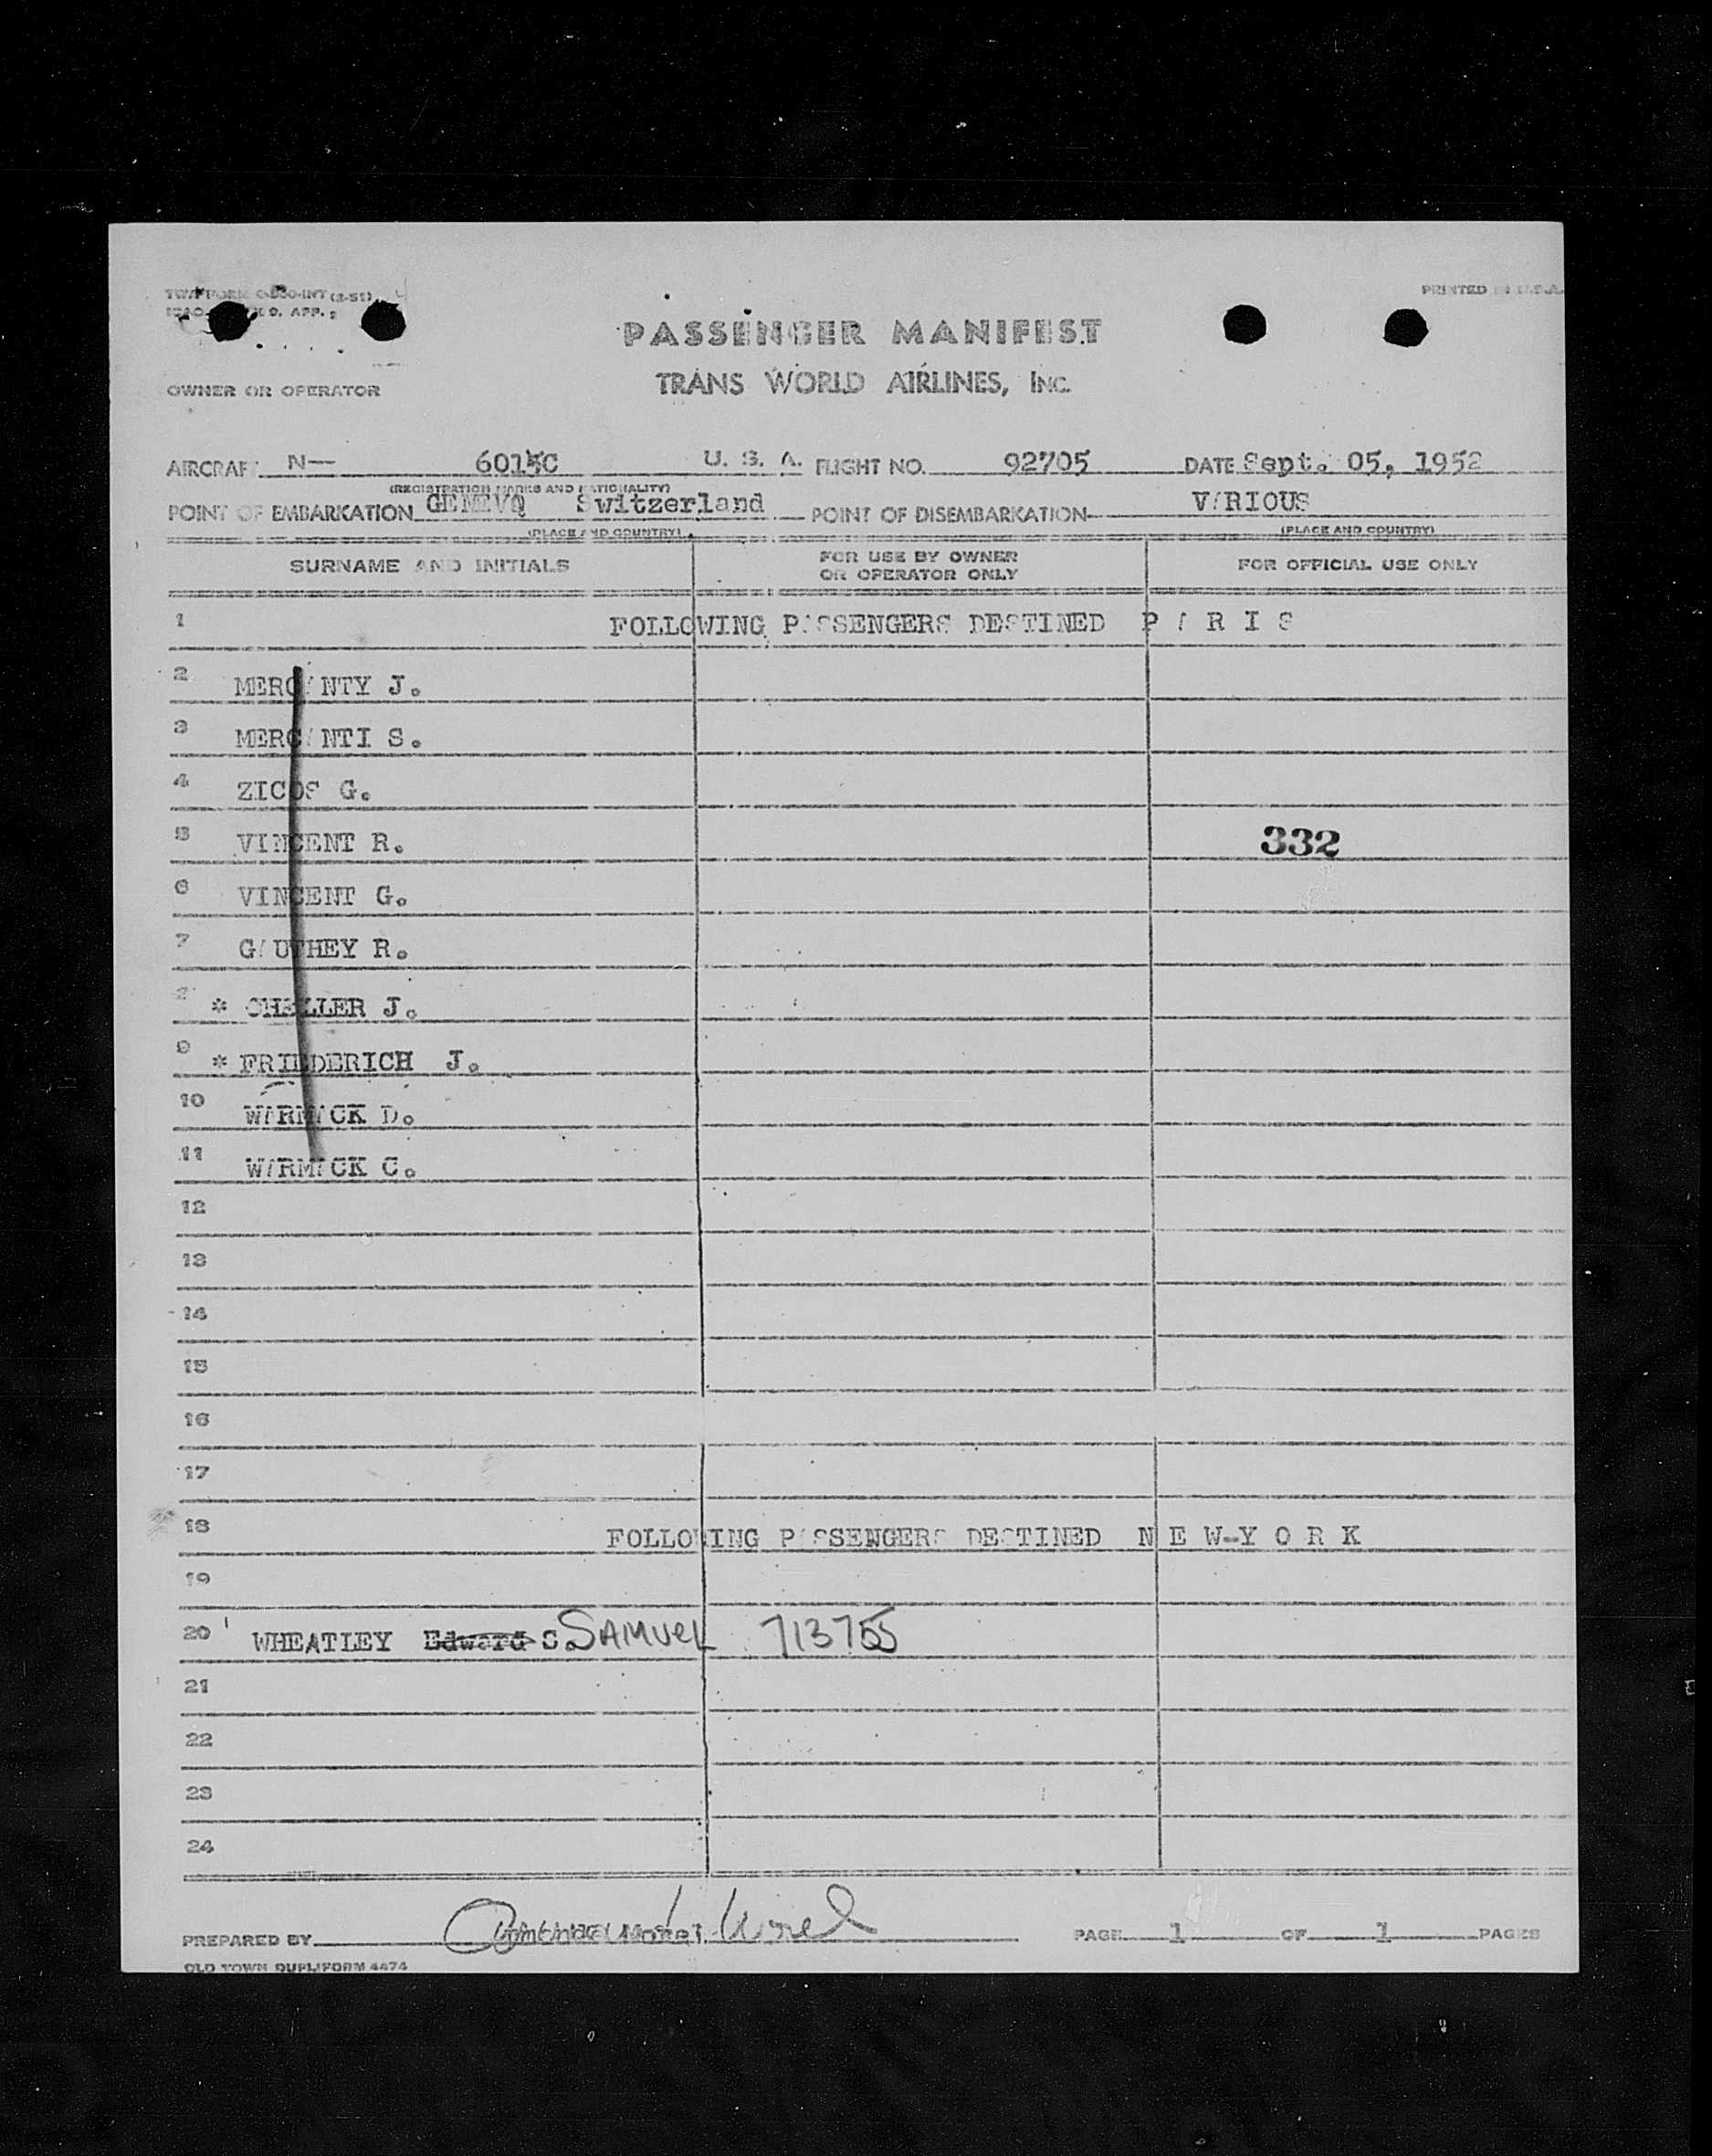 TWA FORM
PRINTED IN U.S.A.
PASSENGER MANIFEST
TRANS WORLD AIRLINES, INC.
OWNER OR OPERATOR
AIRCRAFT N— 6015C U. S. A. FLIGHT NO. 92705 DATE Sept. 05, 1952
(REGISTRATION MARKS AND NATIONALITY)
POINT OF EMBARKATION GENEVQ Switzerland POINT OF DISEMBARKATION VARIOUS
(PLACE AND COUNTRY) (PLACE AND COUNTRY)
SURNAME AND INITIALS FOR USE BY OWNER OR OPERATOR ONLY FOR OFFICIAL USE ONLY
1 FOLLOWING PASSENGERS DESTINED P A R I S
2 MERCANTY J.
3 MERCANTI S.
4 ZICOS G.
5 VINCENT R. 332
6 VINCENT G.
7 GAUTHEY R.
8 * CHELLER J.
9 * FRIEDERICH J.
10 WARMACK D.
11 WARMACK C.
12
13
14
15
16
17
18 FOLLOWING PASSENGERS DESTINED N E W-Y O R K
19
20 WHEATLEY Edward S. SAMUEL 713755
21
22
23
24
PREPARED BY PAGE 1 OF 1 PAGES
OLD TOWN DUPLIFORM 4474